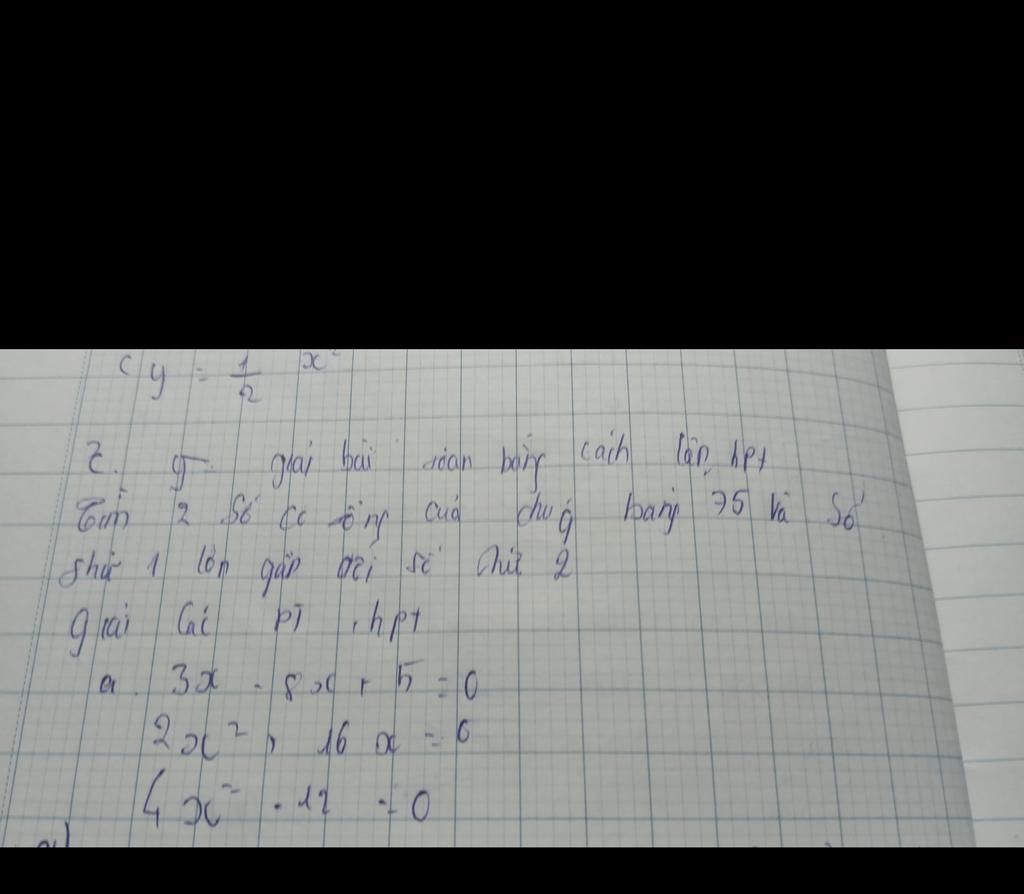 c y = 1/2 x²
2. giải bài toán bằng cách lập hpt
Tìm 2 số có tổng của chúg bằng 75 và số
thứ 1 lớn gấp đôi số thứ 2
giải các PT , hpt
a. 3x - 8x + 5 = 0
2x² + 16 x = 0
4x² - 12 = 0
a)